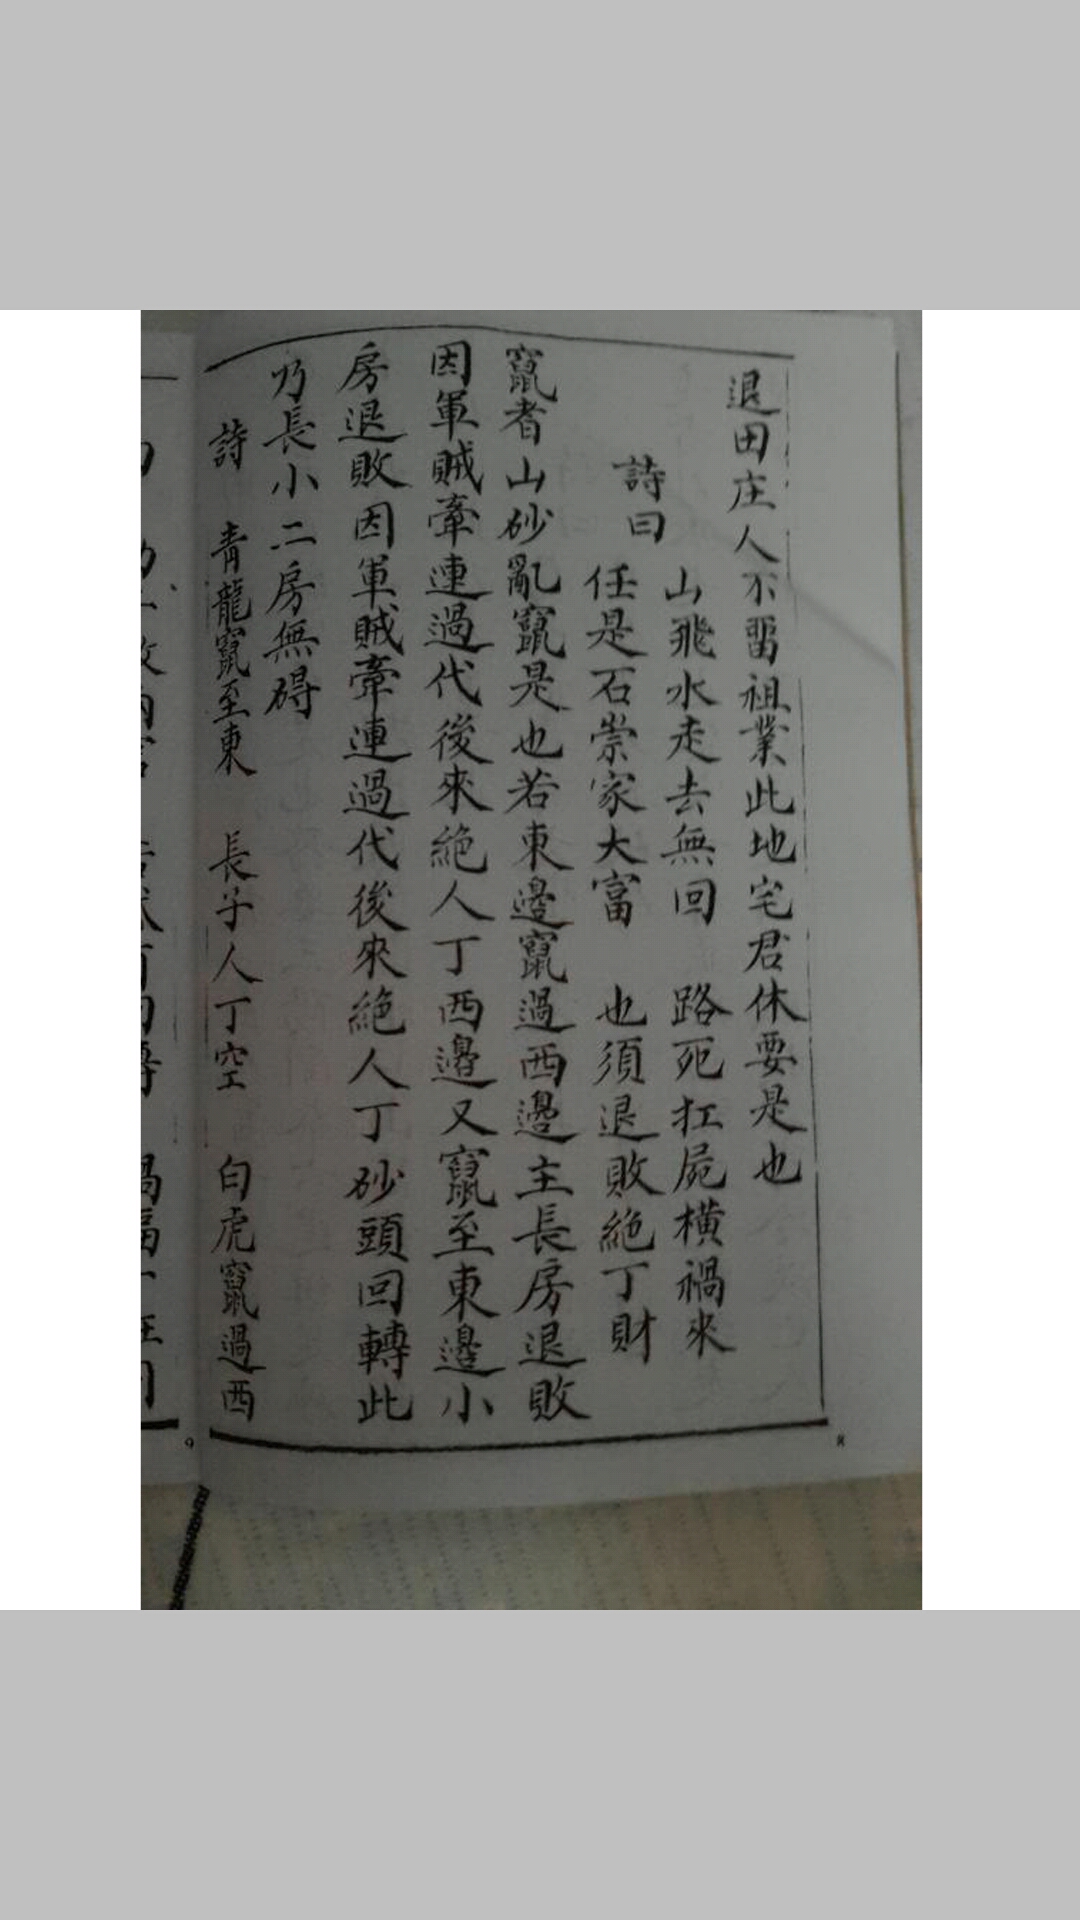 退田庄人不畱祖業此地宅君休要是也
山飛水走去無回　路死扛屍橫禍來
詩曰
任是石崇家大富　也須退敗絕丁財
竄者山砂亂竄是也若東邊竄過西邊主長房退敗
因軍賊牽連過代後來絕人丁西邊又竄至東邊小
房退敗因軍賊牽連過代後來絕人丁砂頭回轉此
乃長小二房無碍
詩　青龍竄至東　長子人丁空　白虎竄過西
8
9